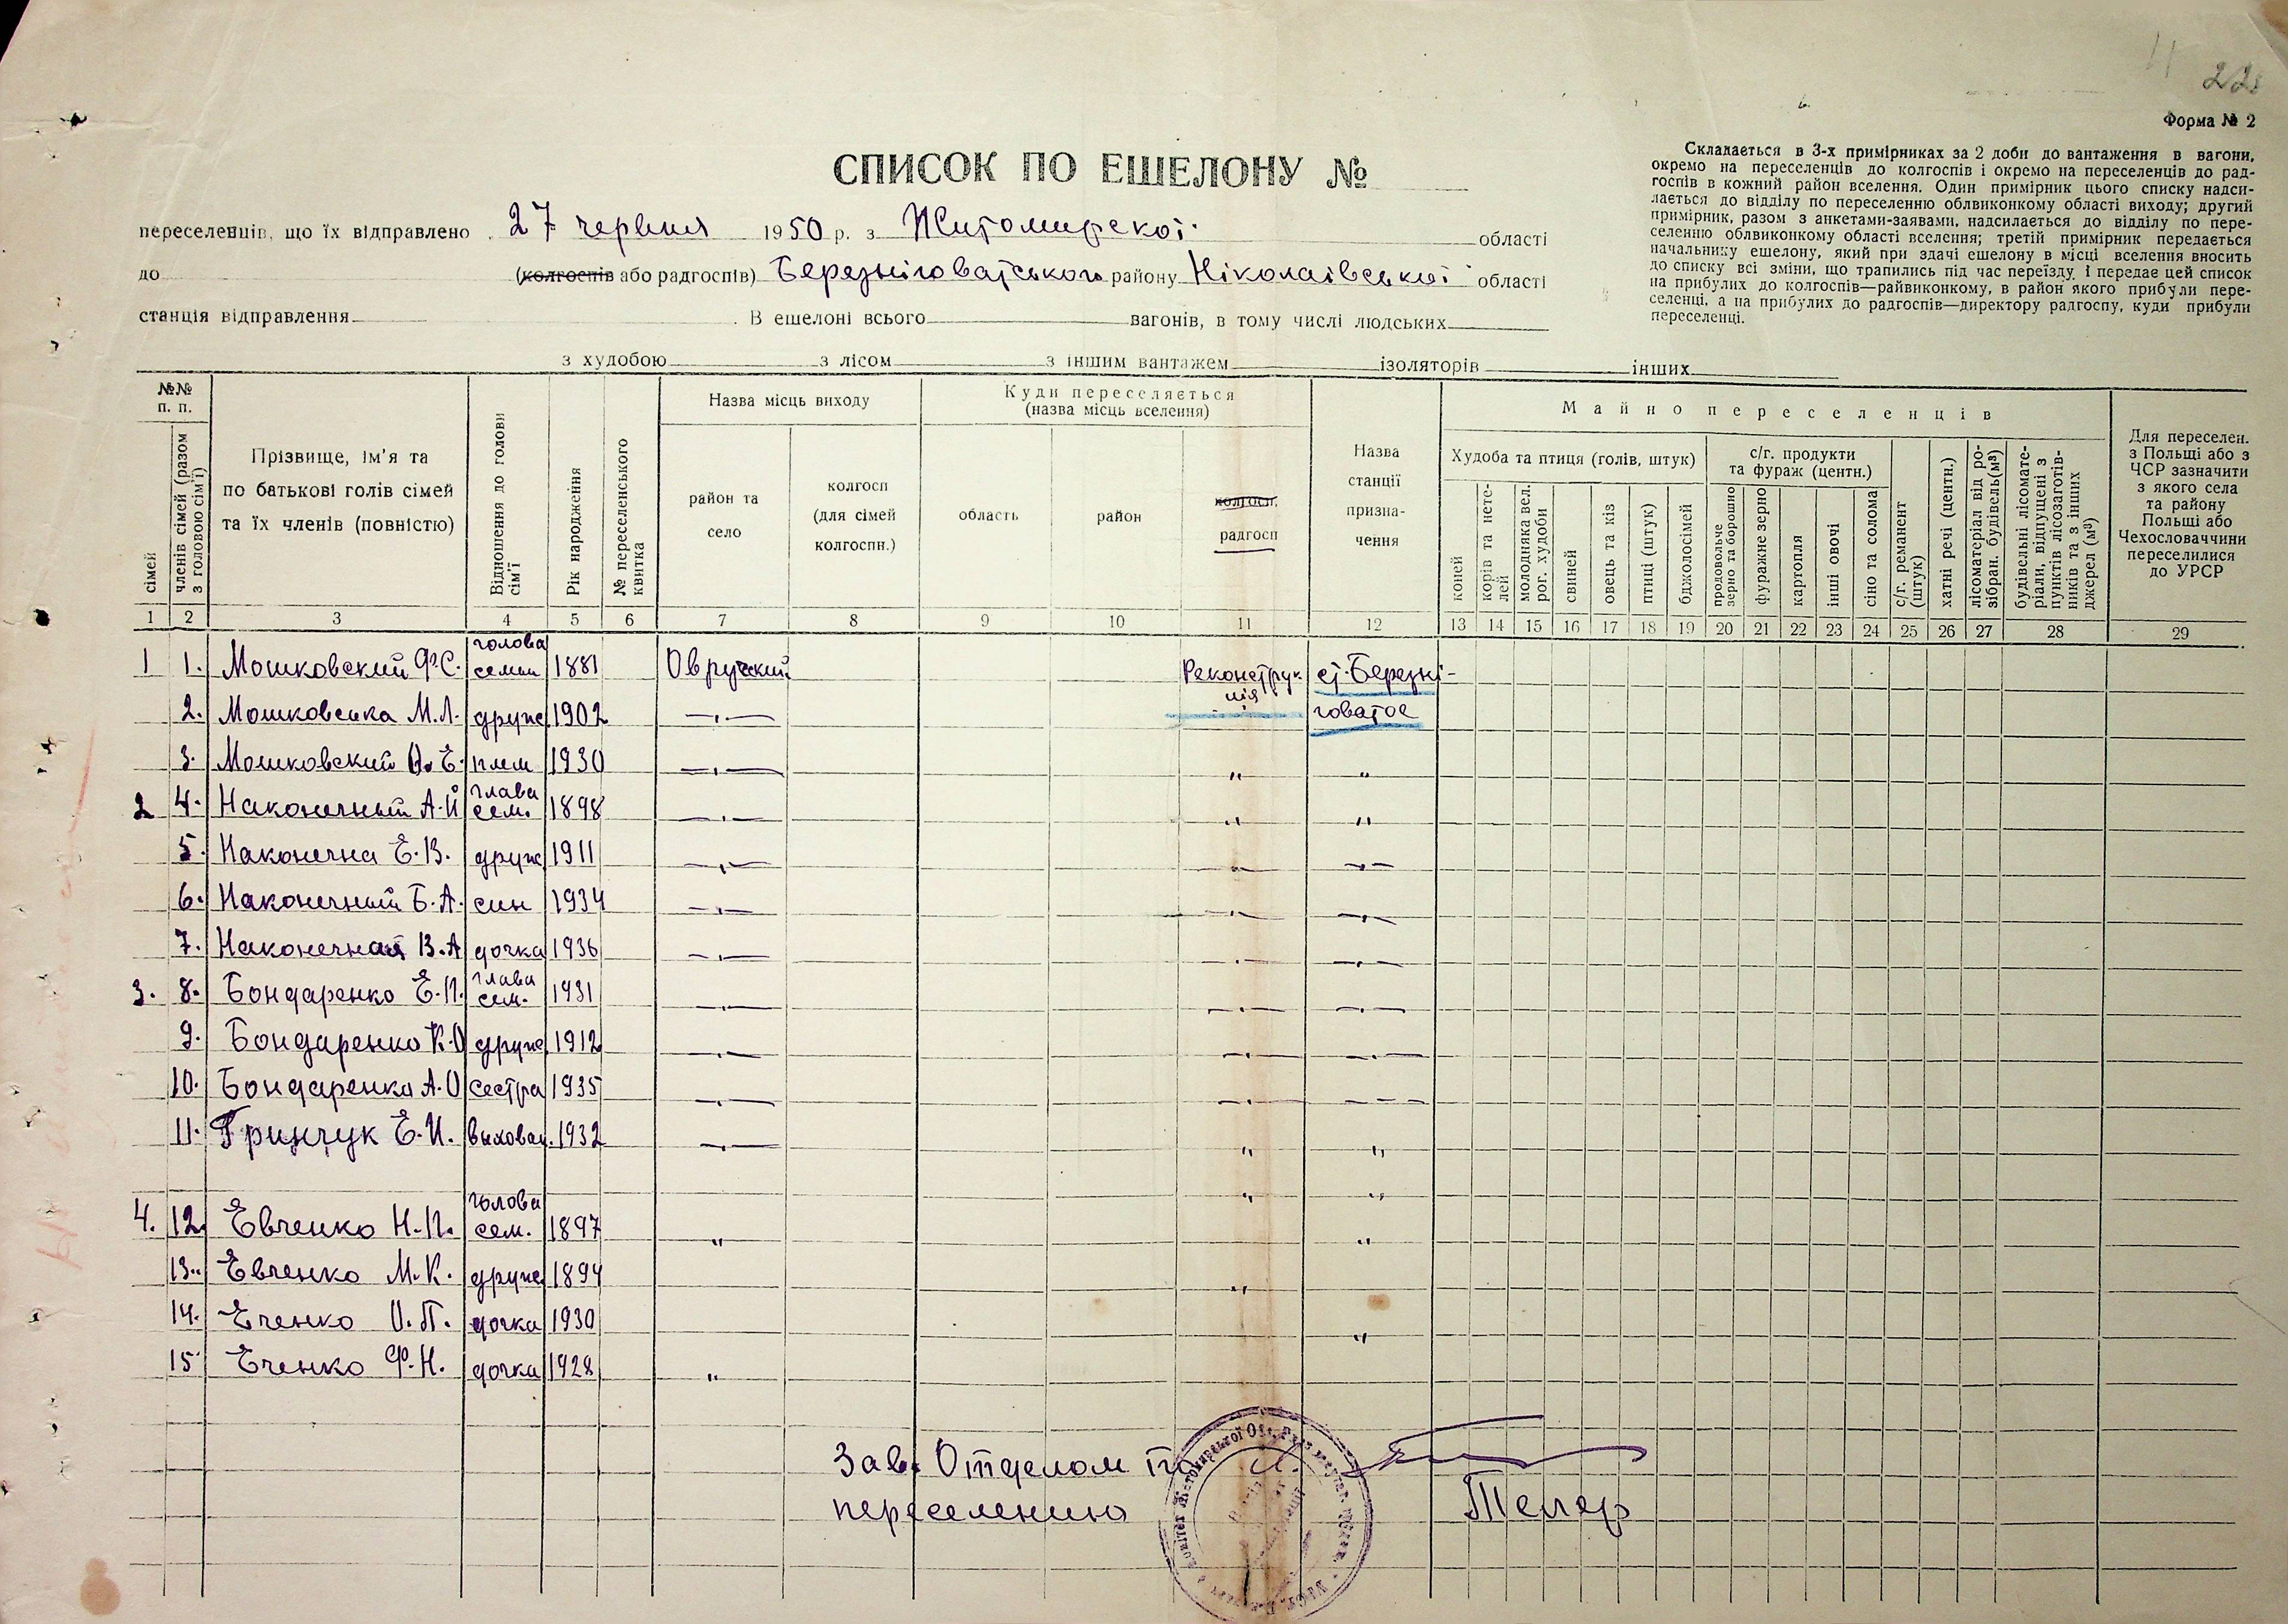 22
Форма № 2
СПИСОК ПО ЕШЕЛОНУ №
Складається в 3-х примірниках за 2 доби до вантаження в вагони,
окремо на переселенців до колгоспів і окремо на переселенців до рад-
госпів в кожний район вселення. Один примірник цього списку надси-
лається до відділу по переселенню облвиконкому області виходу; другий
примірник, разом з анкетами-заявами, надсилається до відділу по пере-
селенню облвиконкому області вселення; третій примірник передається
начальнику ешелону, який при здачі ешелону в місці вселення вносить
до списку всі зміни, що трапились під час переїзду, і передає цей список
на прибулих до колгоспів—райвиконкому, в район якого прибули пере-
селенці, а на прибулих до радгоспів—директору радгоспу, куди прибули
переселенці.
переселенців, що їх відправлено 27 червня 1950 р. з Житомирскої області
до (колгоспів або радгоспів) Березніговатського району Ніколаівської області
станція відправлення В ешелоні всього вагонів, в тому числі людських
з худобою з лісом з іншим вантажем ізоляторів інших
№№ п. п.
сімей
членів сімей (разом з головою сім'ї)
Прізвище, ім'я та по батькові голів сімей та їх членів (повністю)
Відношення до голови сім'ї
Рік народження
№ переселенського квитка
Назва місць виходу
район та село
колгосп (для сімей колгоспн.)
Куди переселяється (назва місць вселення)
область
район
колгосп, радгосп
Назва станції призна-чення
Майно переселенців
Худоба та птиця (голів, штук)
коней
корів та нете-лей
молодняка вел. рог. худоби
свиней
овець та кіз
птиці (штук)
бджолосімей
с/г. продукти та фураж (центн.)
продовольче зерно та борошно
фуражне зерно
картопля
інші овочі
сіно та солома
с/г. реманент (штук)
хатні речі (центн.)
лісоматеріал від ро-зібран. будівель(м³)
будівельні лісомате-ріали, відпущені з пунктів лісозаготів-ників та з інших джерел (м³)
Для переселен. з Польщі або з ЧСР зазначити з якого села та району Польщі або Чехословаччини переселилися до УРСР
1 2 3 4 5 6 7 8 9 10 11 12 13 14 15 16 17 18 19 20 21 22 23 24 25 26 27 28 29
1 1. Мошковский Ф.С. голова семьи 1881 Овручский Реконструкція ст. Березні-
2. Мошковська М.Л. друж 1902 —„— говатое
3. Мошковский О.Е. плем 1930 —„— „ „
2 4. Наконечный А.Й глава сем. 1898 —„— „ „
5. Наконечна Е.В. друж 1911 —„— „ —„—
6. Наконечный Б.А. син 1934 —„— —„— —„—
7. Наконечная В.А дочка 1936 —„— —„— —„—
3. 8. Бондаренко Е.П. глава сем. 1931 —„— —„— —„—
9. Бондаренко К.О друж 1912 —„— —„— —„—
10. Бондаренко А.О сестра 1935 —„— —„— — — —
11. Гринчук Е.И. выхован. 1932 —„— „ „
„ „
4. 12. Евченко Н.П. голова сем. 1897 „ „
13. Евченко М.К. друже 1894 „
14. Еченко О.П. дочка 1930 „
15 Еченко Ф.Н. дочка 1928 „
Зав. Отделом по
переселению Тепер